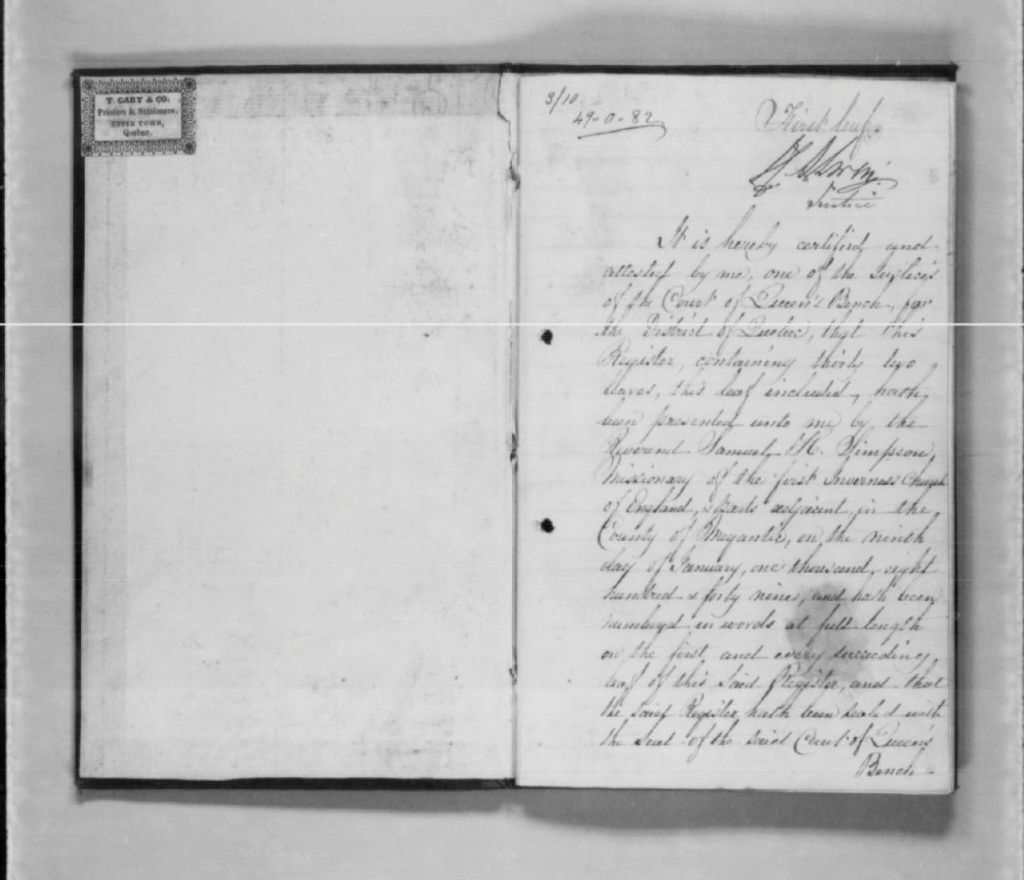 T. CARY & CO.
Printers & Stationers,
UPPER TOWN,
Quebec.
3/10
49-0-82
First leaf
Justice
It is hereby certified and
attested by me, one of the Justices
of the Court of Queen's Bench, for
the District of Quebec, that this
Register, containing thirty two
leaves, this leaf included, hath
been presented unto me by the
Reverend Samuel H. Simpson,
Missionary of the first Inverness Church
of England, & parts adjacent, in the
County of Megantic, on the ninth
day of January, one thousand, eight
hundred & forty nine, and hath been
numbered in words at full length
on the first and every succeeding
leaf of this said Register, and that
the said Register hath been sealed with
the Seal of the said Court of Queen's
Bench